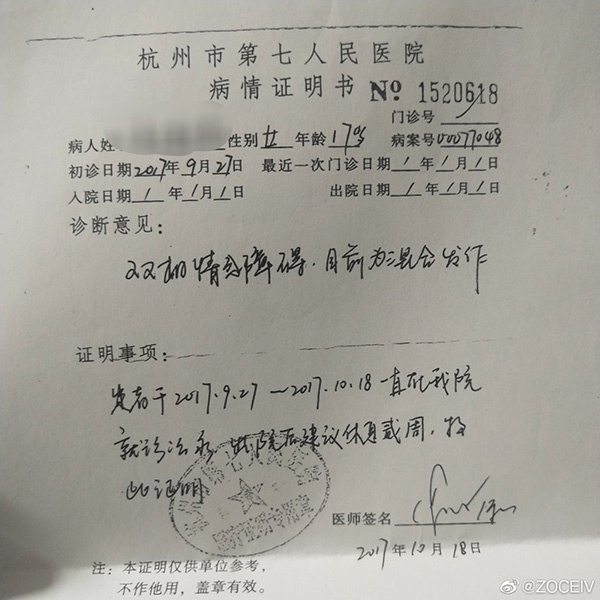 杭州市第七人民医院
病情证明书 № 1520618
门诊号 /
病人姓 性别 女 年龄 17岁 病案号 00077048
初诊日期 2017年9月27日 最近一次门诊日期 / 年 / 月 / 日
入院日期 / 年 / 月 / 日 出院日期 / 年 / 月 / 日
诊断意见:
双相情感障碍.目前为混合发作
证明事项:
患者于2017.9.27—2017.10.18一直在我院
就诊治疗 出院后建议休息贰周,特
此证明
医师签名
2017年10月18日
注:本证明仅供单位参考,
不作他用,盖章有效。
@ZOCEIV